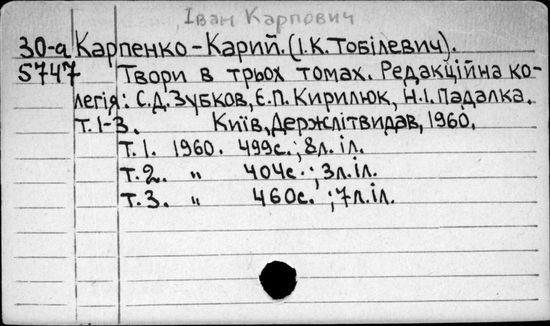 Іван Карпович
30-а Карпенко-Карий. (І.К.Тобілевич).
5747 Твори в трьох томах. Редакційна ко-
легія: С.Д.Зубков, Є.П.Кирилюк, Н.І.Падалка.
Т.1-3. Київ, Держлітвидав, 1960.
Т.1. 1960. 499с.; 8л. іл.
т.2. " 404с.; 3л.іл.
т.3. " 460с. ; 7л.іл.